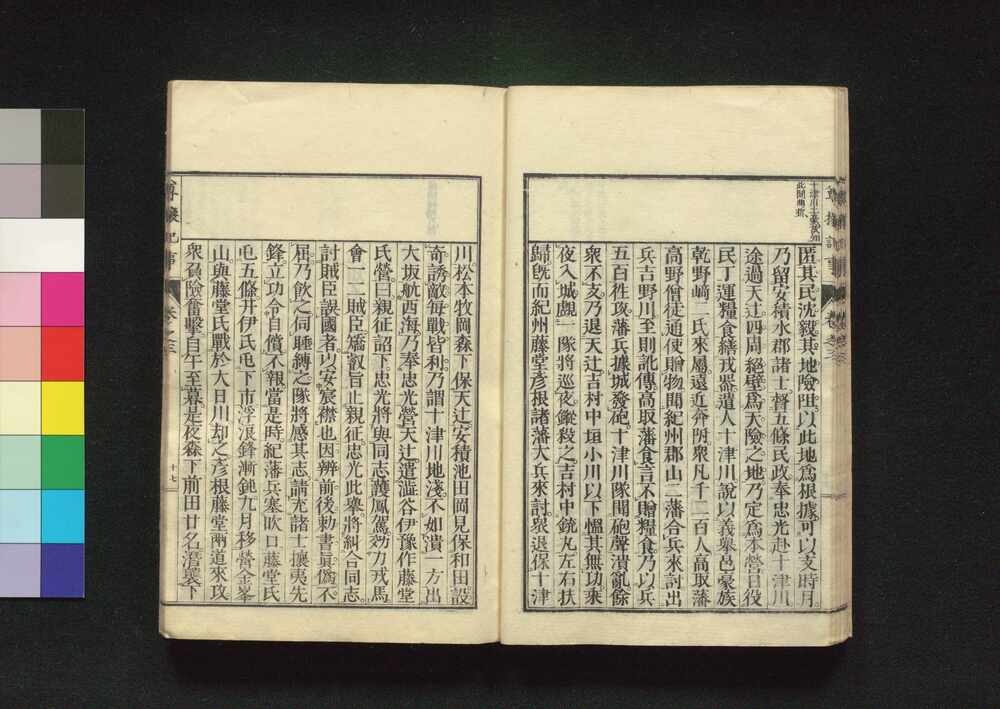 匿其民沈毅其地險阻以此地爲根據可以支時月
乃留安積水郡諸士督五條民政奉忠光赴十津川
途過天辻四周絕壁爲天險之地乃定爲本營日役
民丁運糧食繕戎器遣人十津川說以義擧邑豪族
乾野﨑二氏來屬遠近奔附衆凡千二百人高取藩
高野僧徒通使贈物聞紀州郡山二藩合兵來討出
兵吉野川至則訛傳高取藩食言不贈糧食乃以兵
五百徃攻藩兵據城發砲十津川隊聞砲聲潰亂餘
衆不支乃退天辻吉村中垣小川以下慍其無功乘
夜入城覘一隊將巡夜鎗殺之吉村中銃丸左右扶
歸旣而紀州藤堂彥根諸藩大兵來討衆退保十津
尊攘記事
卷之三
川松本牧岡森下保天辻安積池田岡見保和田設
奇誘敵每戰皆利乃謂十津川地淺不如潰一方出
大坂航西海乃奉忠光營天辻遣澁谷伊豫作藤堂
氏營曰親征詔下忠光將與同志護鳳駕効力戎馬
會一二賊臣矯叡旨止親征忠光此擧將糾合同志
討賊臣誤國者以安宸襟也因辨前後勅書眞僞不
屈乃飮之伺睡縛之隊將感其志請充諸士攘夷先
鋒立功令自償不報當是時紀藩兵塞吹口藤堂氏
屯五條井伊氏屯下市浮浪鋒漸鈍九月移營金峯
山與藤堂氏戰於大日川却之彥根藤堂兩道來攻
衆負險奮擊自午至暮是夜森下前田廿名潛襲下
十七
尊攘記事
卷之三